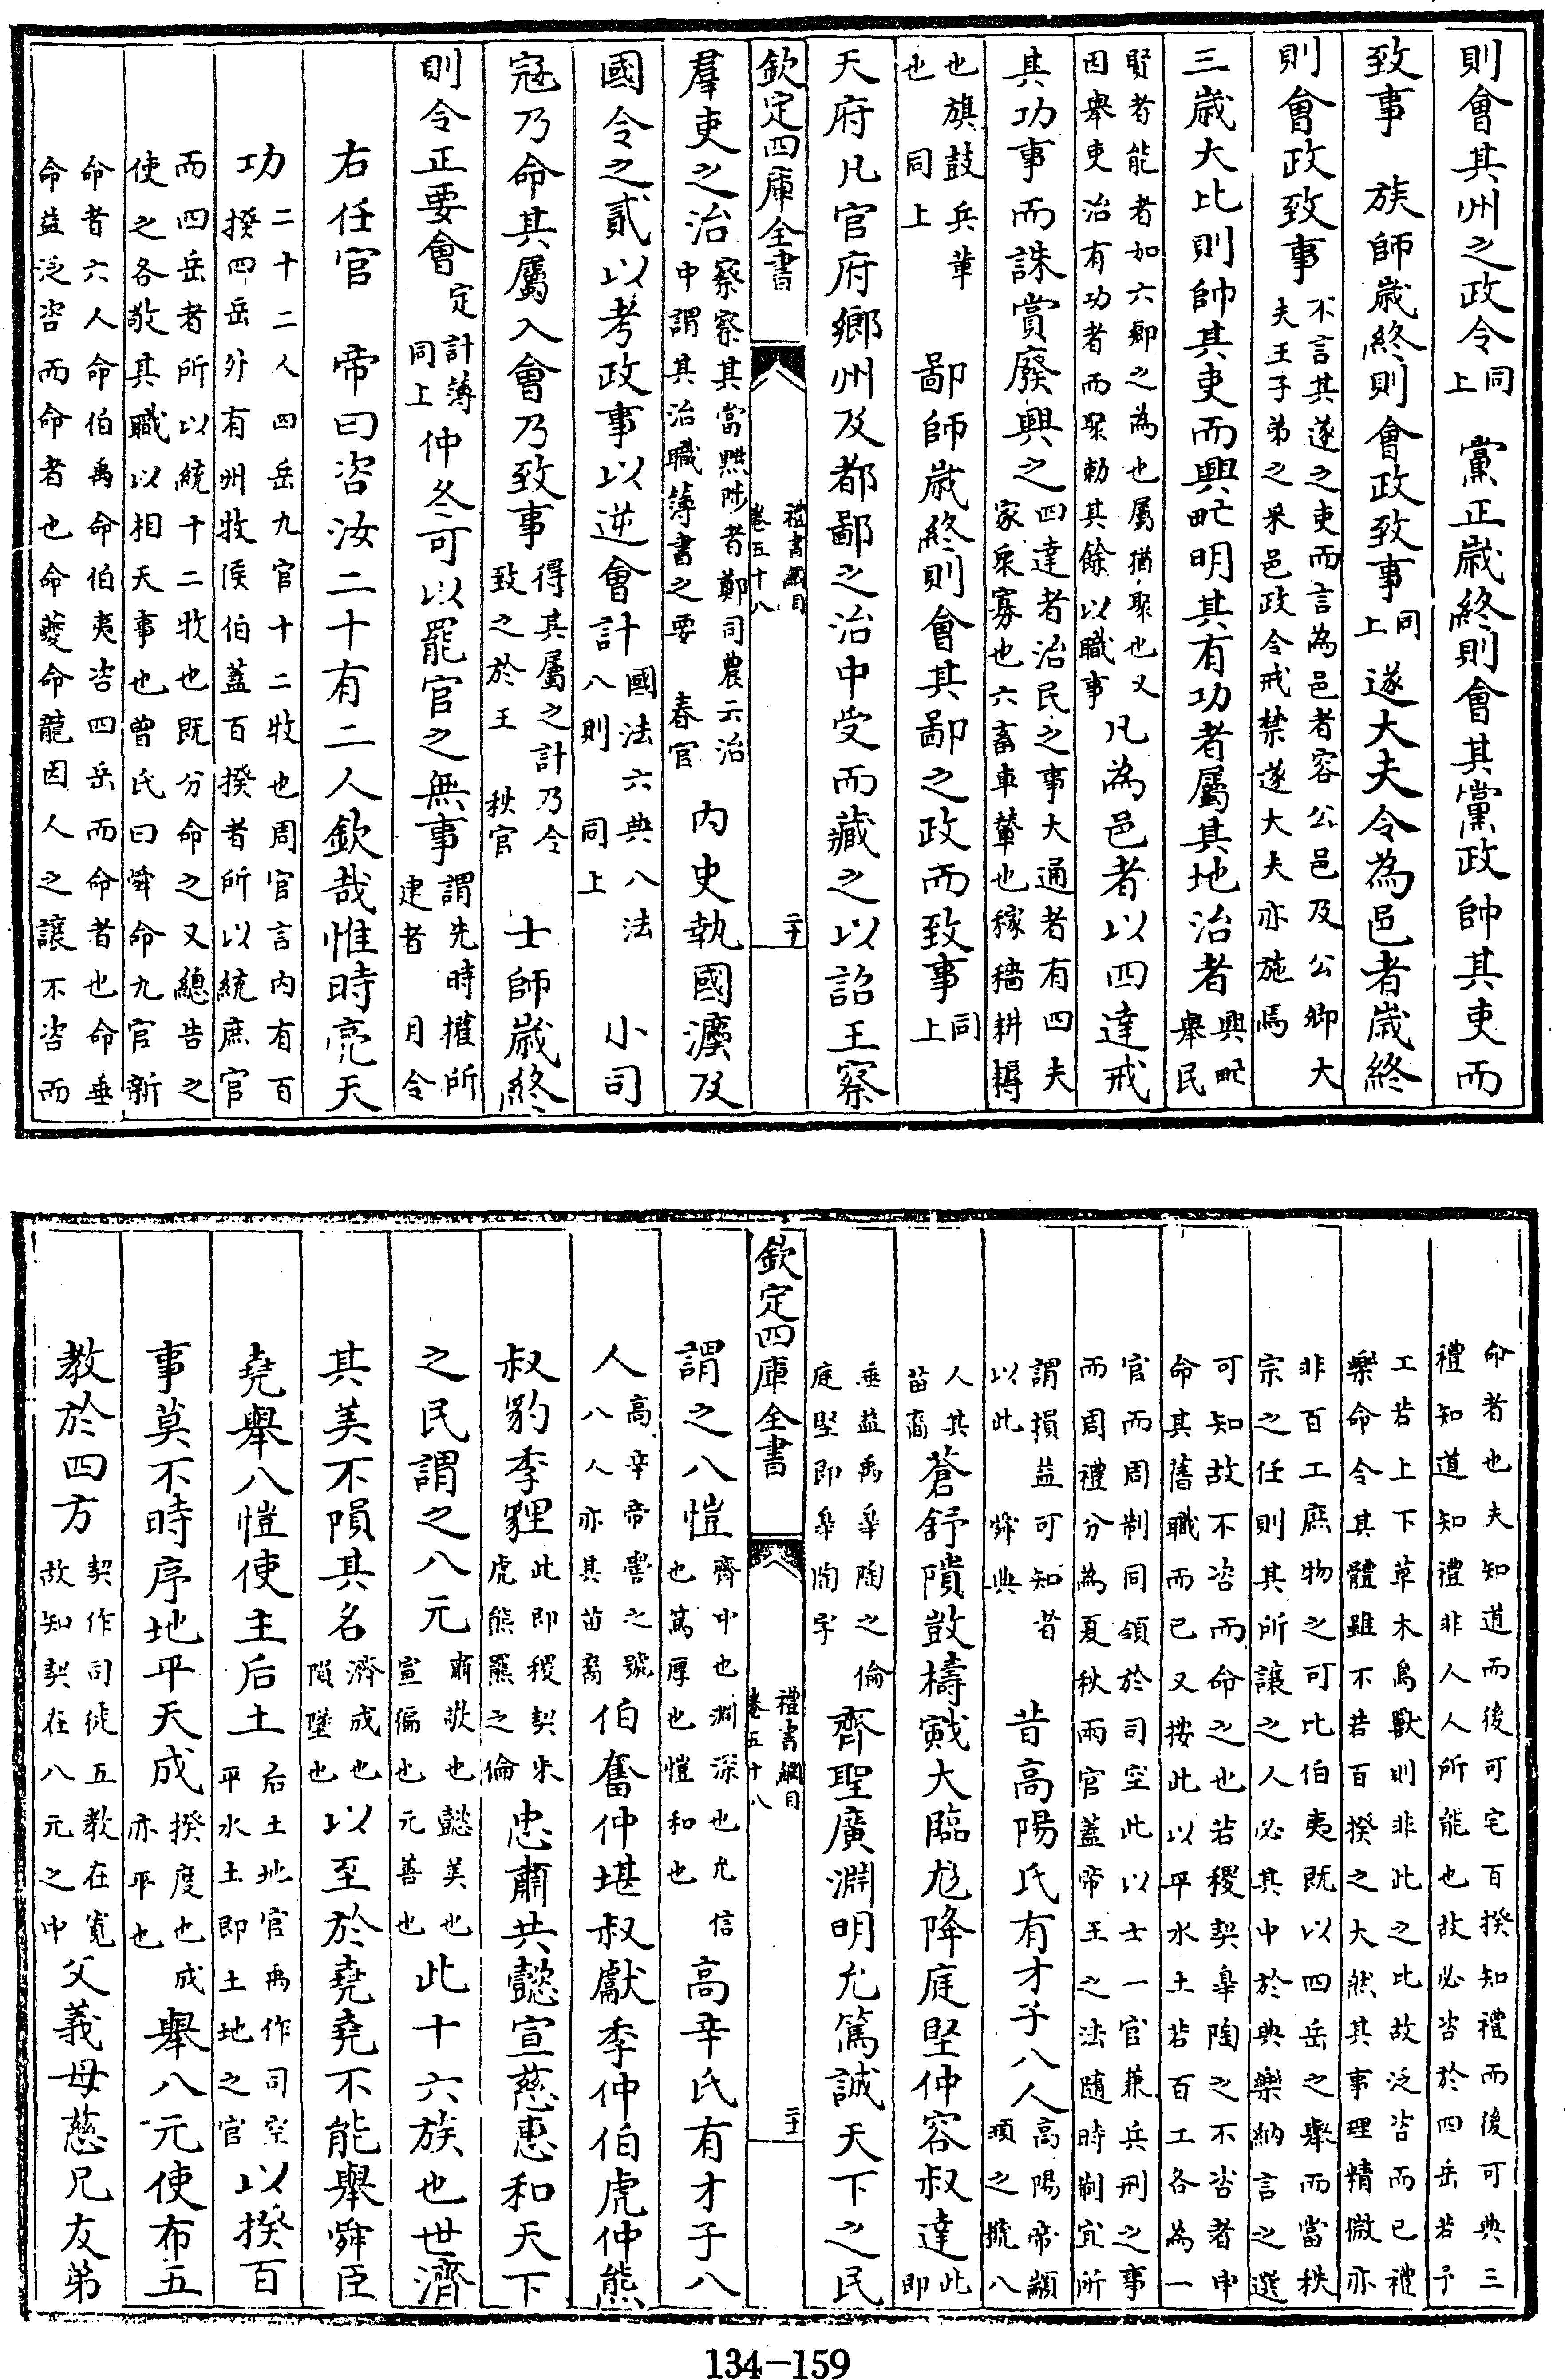 則會其州之政令同上　黨正歲終則會其黨政帥其吏而
致事　族師歲終則會政致事同上　遂大夫令為邑者歲終
則會政致事不言其遂之吏而言為邑者容公邑及公卿大夫王子弟之采邑政令戒禁遂大夫亦施焉
三歲大比則帥其吏而興甿明其有功者屬其地治者興甿舉民
賢者能者如六鄉之為也屬猶聚也又因舉吏治有功者而聚勅其餘以職事凡為邑者以四達戒
其功事而誅賞廢興之四達者治民之事大通者有四夫家衆寡也六畜車輦也稼穡耕耨
也旗鼓兵革也　同上　鄙師歲終則會其鄙之政而致事同上
天府凡官府鄉州及都鄙之治中受而藏之以詔王察
羣吏之治察察其當黜陟者鄭司農云治中謂其治職簿書之要　春官　內史執國灋及
國令之貳以考政事以逆會計國法六典八法八則　同上　小司
寇乃命其屬入會乃致事得其屬之計乃令致之於王　秋官　士師歲終
則令正要會定計簿　同上　仲冬可以罷官之無事謂先時權所建者　月令
右任官　帝曰咨汝二十有二人欽哉惟時亮天
功二十二人四岳九官十二牧也周官言內有百揆四岳外有州牧侯伯蓋百揆者所以統庶官
而四岳者所以統十二牧也既分命之又總告之使之各敬其職以相天事也曾氏曰舜命九官新
命者六人命伯禹命伯夷咨四岳而命者也命垂命益泛咨而命者也命夔命龍因人之讓不咨而
欽定四庫全書　禮書綱目　卷五十八　二十
命者也夫知道而後可宅百揆知禮而後可典三禮知道知禮非人人所能也故必咨於四岳若予
工若上下草木鳥獸則非此之比故泛咨而已禮樂命令其體雖不若百揆之大然其事理精微亦
非百工庶物之可比伯夷既以四岳之舉而當秩宗之任則其所讓之人必其中於典樂納言之選
可知故不咨而命之也若稷契臯陶之不咨者申命其舊職而已又按此以平水土若百工各為一
官而周制同領於司空此以士一官兼兵刑之事而周禮分為夏秋兩官蓋帝王之法隨時制宜所
謂損益可知者以此　舜典　昔高陽氏有才子八人高陽帝顓頊之號八
人其苗裔蒼舒隤敳檮戭大臨尨降庭堅仲容叔達此即
垂益禹臯陶之倫庭堅即臯陶字　齊聖廣淵明允篤誠天下之民
謂之八愷齊中也淵深也允信也篤厚也愷和也　高辛氏有才子八
人高辛帝嚳之號八人亦其苗裔伯奮仲堪叔獻季仲伯虎仲熊
叔豹季貍此即稷契朱虎熊羆之倫忠肅共懿宣慈惠和天下
之民謂之八元肅敬也懿美也宣徧也元善也此十六族也世濟
其美不隕其名濟成也隕墜也以至於堯堯不能舉舜臣
堯舉八愷使主后土后土地官禹作司空平水土即土地之官以揆百
事莫不時序地平天成揆度也成亦平也舉八元使布五
教於四方契作司徒五教在寬故知契在八元之中父義母慈兄友弟
欽定四庫全書　禮書綱目　卷五十八　二十一
134-159